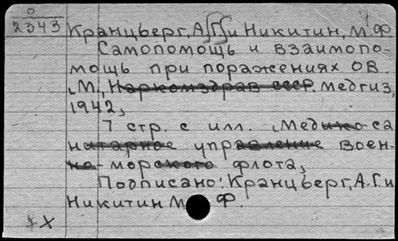 0
2343 Кранцберг, А.Г. и Никитин, М.Ф
Самопомощь и взаимопо-
мощь при поражениях ОВ.
М., Наркомздрав СССР. медгиз,
1942,
7 стр. с илл. Медико-са
нитарное управление воен-
но-морского флота,
Подписано: Кранцберг, А.Г. и
Никитин М Ф
X